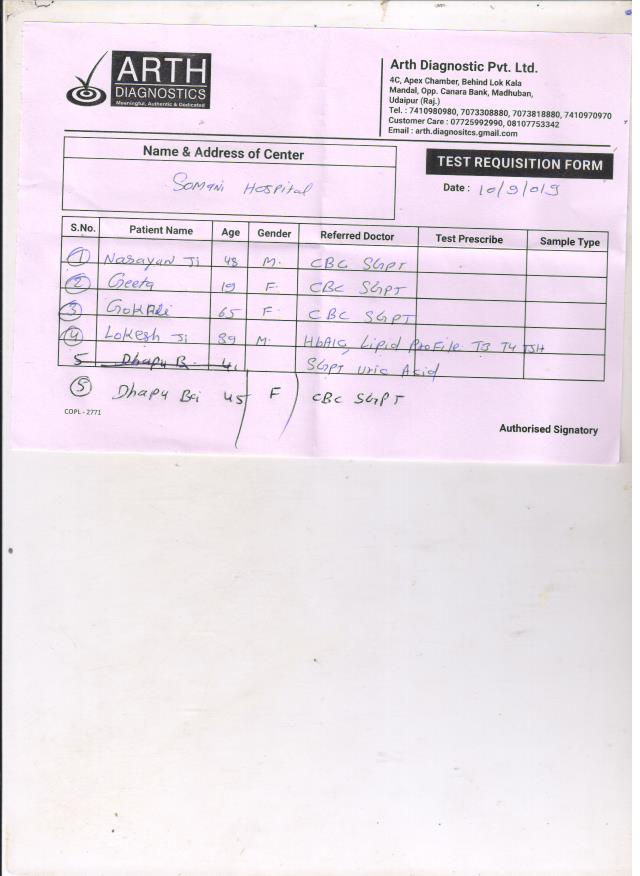 ARTH
DIAGNOSTICS
Meaningful, Authentic & Dedicated
Arth Diagnostic Pvt. Ltd.
4C, Apex Chamber, Behind Lok Kala
Mandal, Opp. Canara Bank, Madhuban,
Udaipur (Raj.)
Tel. : 7410980980, 7073308880, 7073818880, 7410970970
Customer Care : 07725992990, 08107753342
Email : arth.diagnositcs.gmail.com
Name & Address of Center
Somani Hospital
TEST REQUISITION FORM
Date : 10/9/019
S.No. Patient Name Age Gender Referred Doctor Test Prescribe Sample Type
1 Narayan Ji 48 M. CBC SGPT
2 Geeta 19 F. CBC SGPT
3 65 F. CBC SGPT
4 Lokesh Ji 39 M. HbA1C, Lipid Profile T3 T4 TSH
5 Dhapu B. 4 SGPT Uric Acid
5 Dhapu Bai 45 F CBC SGPT
COPL - 2771
Authorised Signatory